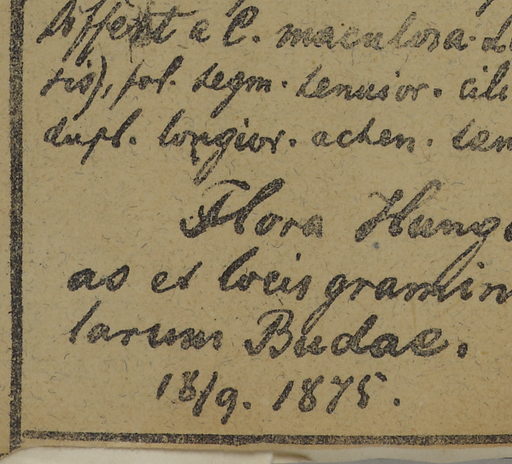 Differt a C. maculosa
fol. segm. tenuior. cili
dupl. longior. achen.
Flora Hung
as et locis gramin
larum Budae.
18/9. 1875.